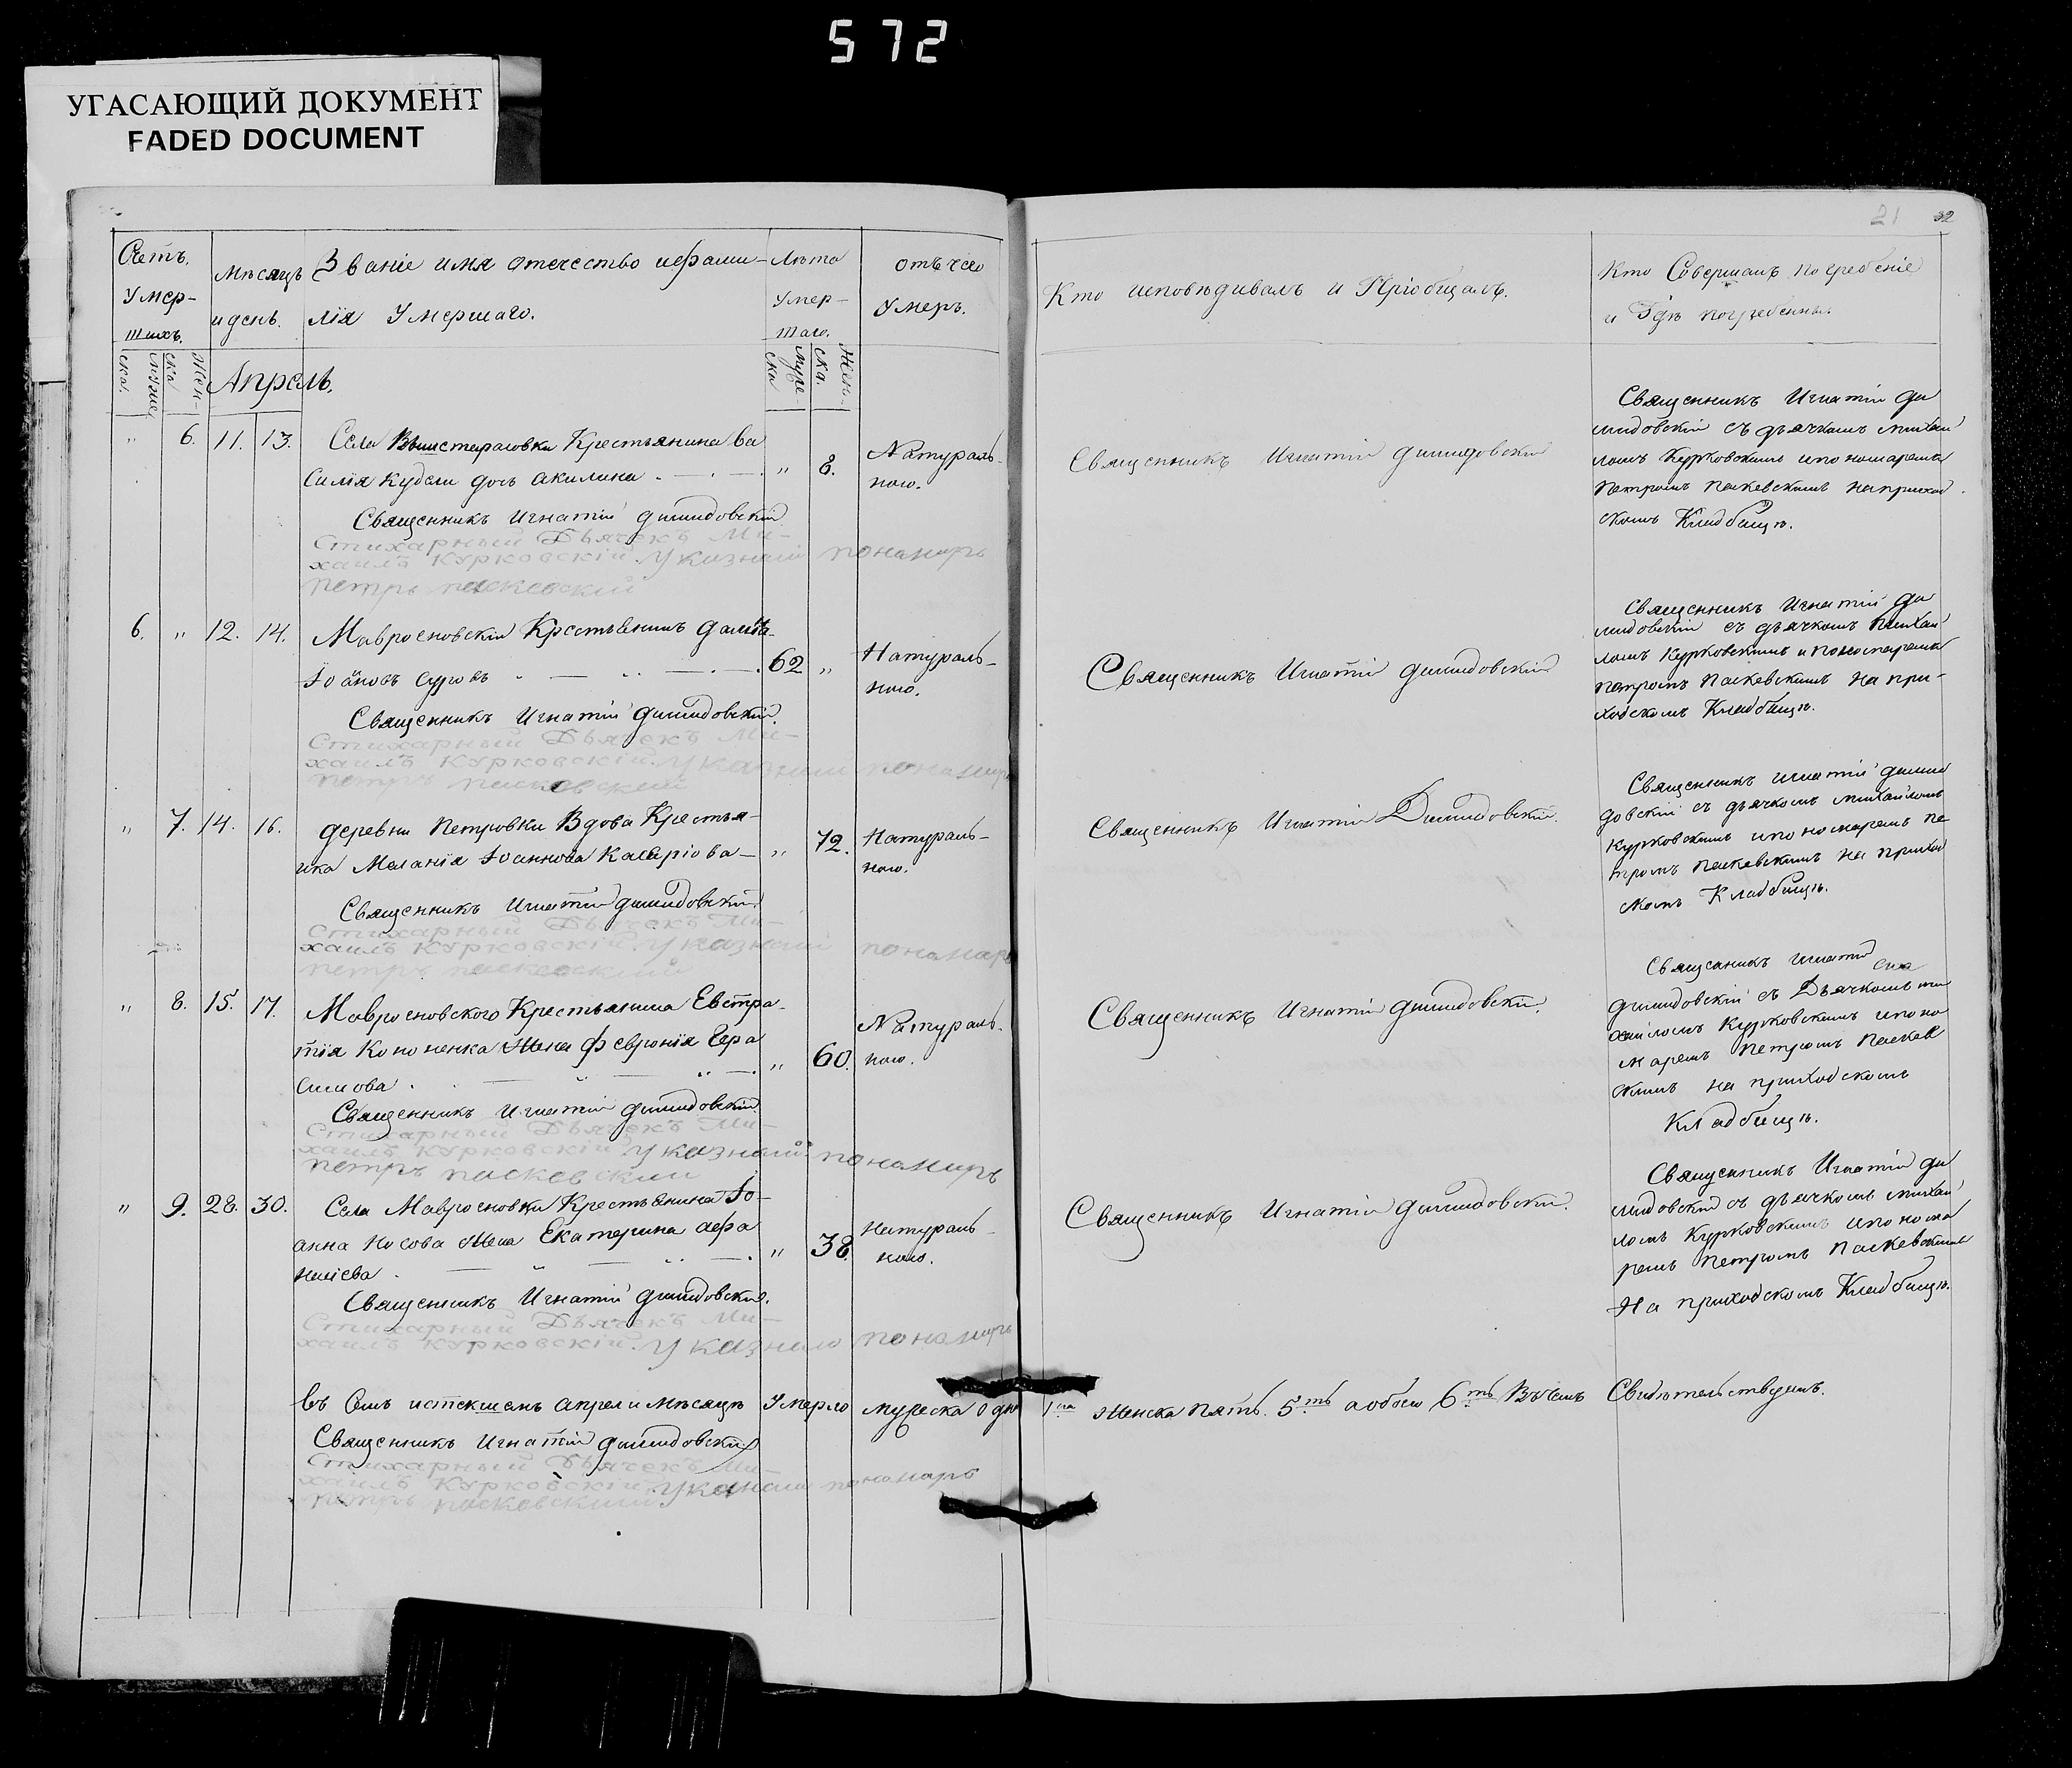 572
УГАСАЮЩИЙ ДОКУМЕНТ
FADED DOCUMENT
21 32
Счетъ Умер-шихъ.
мужеска
женска
Мѣсяцъ и день.
Званіе имя отечество ифами-
лія Умершаго.
Лѣта Умер-шаго.
мужеска
женска.
отъ чего Умеръ.
Кто исповѣдивалъ и Пріобщалъ.
Кто Совершалъ погребеніе
и Гдѣ погребенны.
Апрель.
" 6. 11. 13. Села Крестьянина Ва
силія Кудели дочь акилина " 8.
Натураль-
ною.
Священникъ Игнатій Димидовскій
Стихарный Дьячекъ Ми-
хаилъ Курковскій. Указный понамарь
петръ паскевский
Священникъ Игнатій Димидовскій
Священникъ Игнатій Ди
мидовскій съ дьячкомъ михаи
ломъ Курковскимъ ипономаремъ
Петромъ Паскевскимъ наприход
скомъ Кладбищѣ.
6. " 12. 14. Мавросновскій Крестьянинъ
Іоановъ Суровъ 62 "
Натураль-
ною.
Священникъ Игнатій Димидовскій.
Стихарный Дьячекъ Ми-
хаилъ Курковскій. Указный понамарь
петръ паскевский
Священникъ Игнатій Димидовскій
Священникъ Игнатій Ди
мидовскій съ дьячкомъ Михаи
ломъ Курковскимъ и пономаремъ
петромъ Паскевскимъ На при-
ходскомъ Кладбищѣ.
" 7. 14. 16. деревни Петровки Вдова Крестья-
нка Меланія Іоаннова " 72.
Натураль-
ною.
Священникъ Игнатій Димидовскій.
Стихарный Дьячекъ Ми-
хаилъ Курковскій. Указный понамарь
петръ паскевский
Священникъ Игнатій Димидовскій.
Священникъ игнатій Димид
довскій съ дьячкомъ михайломъ
Курковскимъ ипономаремъ пе
тромъ паскевскимъ на приход
скомъ Кладбищѣ.
" 8. 15. 17. Мавросновского Крестьянина Евстра-
тія Кононенка Жена Февронія Гера
симова " 60.
Натураль-
ною.
Священникъ Игнатій Димидовскій.
Стихарный Дьячекъ Ми-
хаилъ Курковскій. Указный понамарь
петръ паскевский
Священникъ Игнатій Димидовскій.
Священикъ игнатій
Димидовскій съ Дьячкомъ ми
хаиломъ Курковскимъ ипоно
маремъ Петромъ Паскев
скимъ на приходскомъ
Кладбищѣ.
" 9. 28. 30. Села Мавросновки Крестьянина Іо-
анна Носова Жена Екатерина Афа
насіева " 38.
Натураль-
ною.
Священникъ Игнатій Димидовскій.
Стихарный Дьячекъ Ми-
хаилъ Курковскій. Указный понамарь
Священникъ Игнатій Димидовскій.
Священникъ Игнатій Ди
мидовскій съ дьячкомъ михаи
ломъ Курковскимъ ипонома
ремъ Петромъ Паскевскимъ
На приходскомъ Кладбищѣ.
въ Семъ истекшемъ апрели мѣсяцѣ Умерло мужеска Один 1 на Женска Пять. 5ть а обоего 6ть Въ чемъ Свидѣтельствуемъ.
Священникъ Игнатій Димидовскій
Стихарный Дьячекъ Ми-
хаилъ Курковскій. Указный понамарь
петръ паскевский